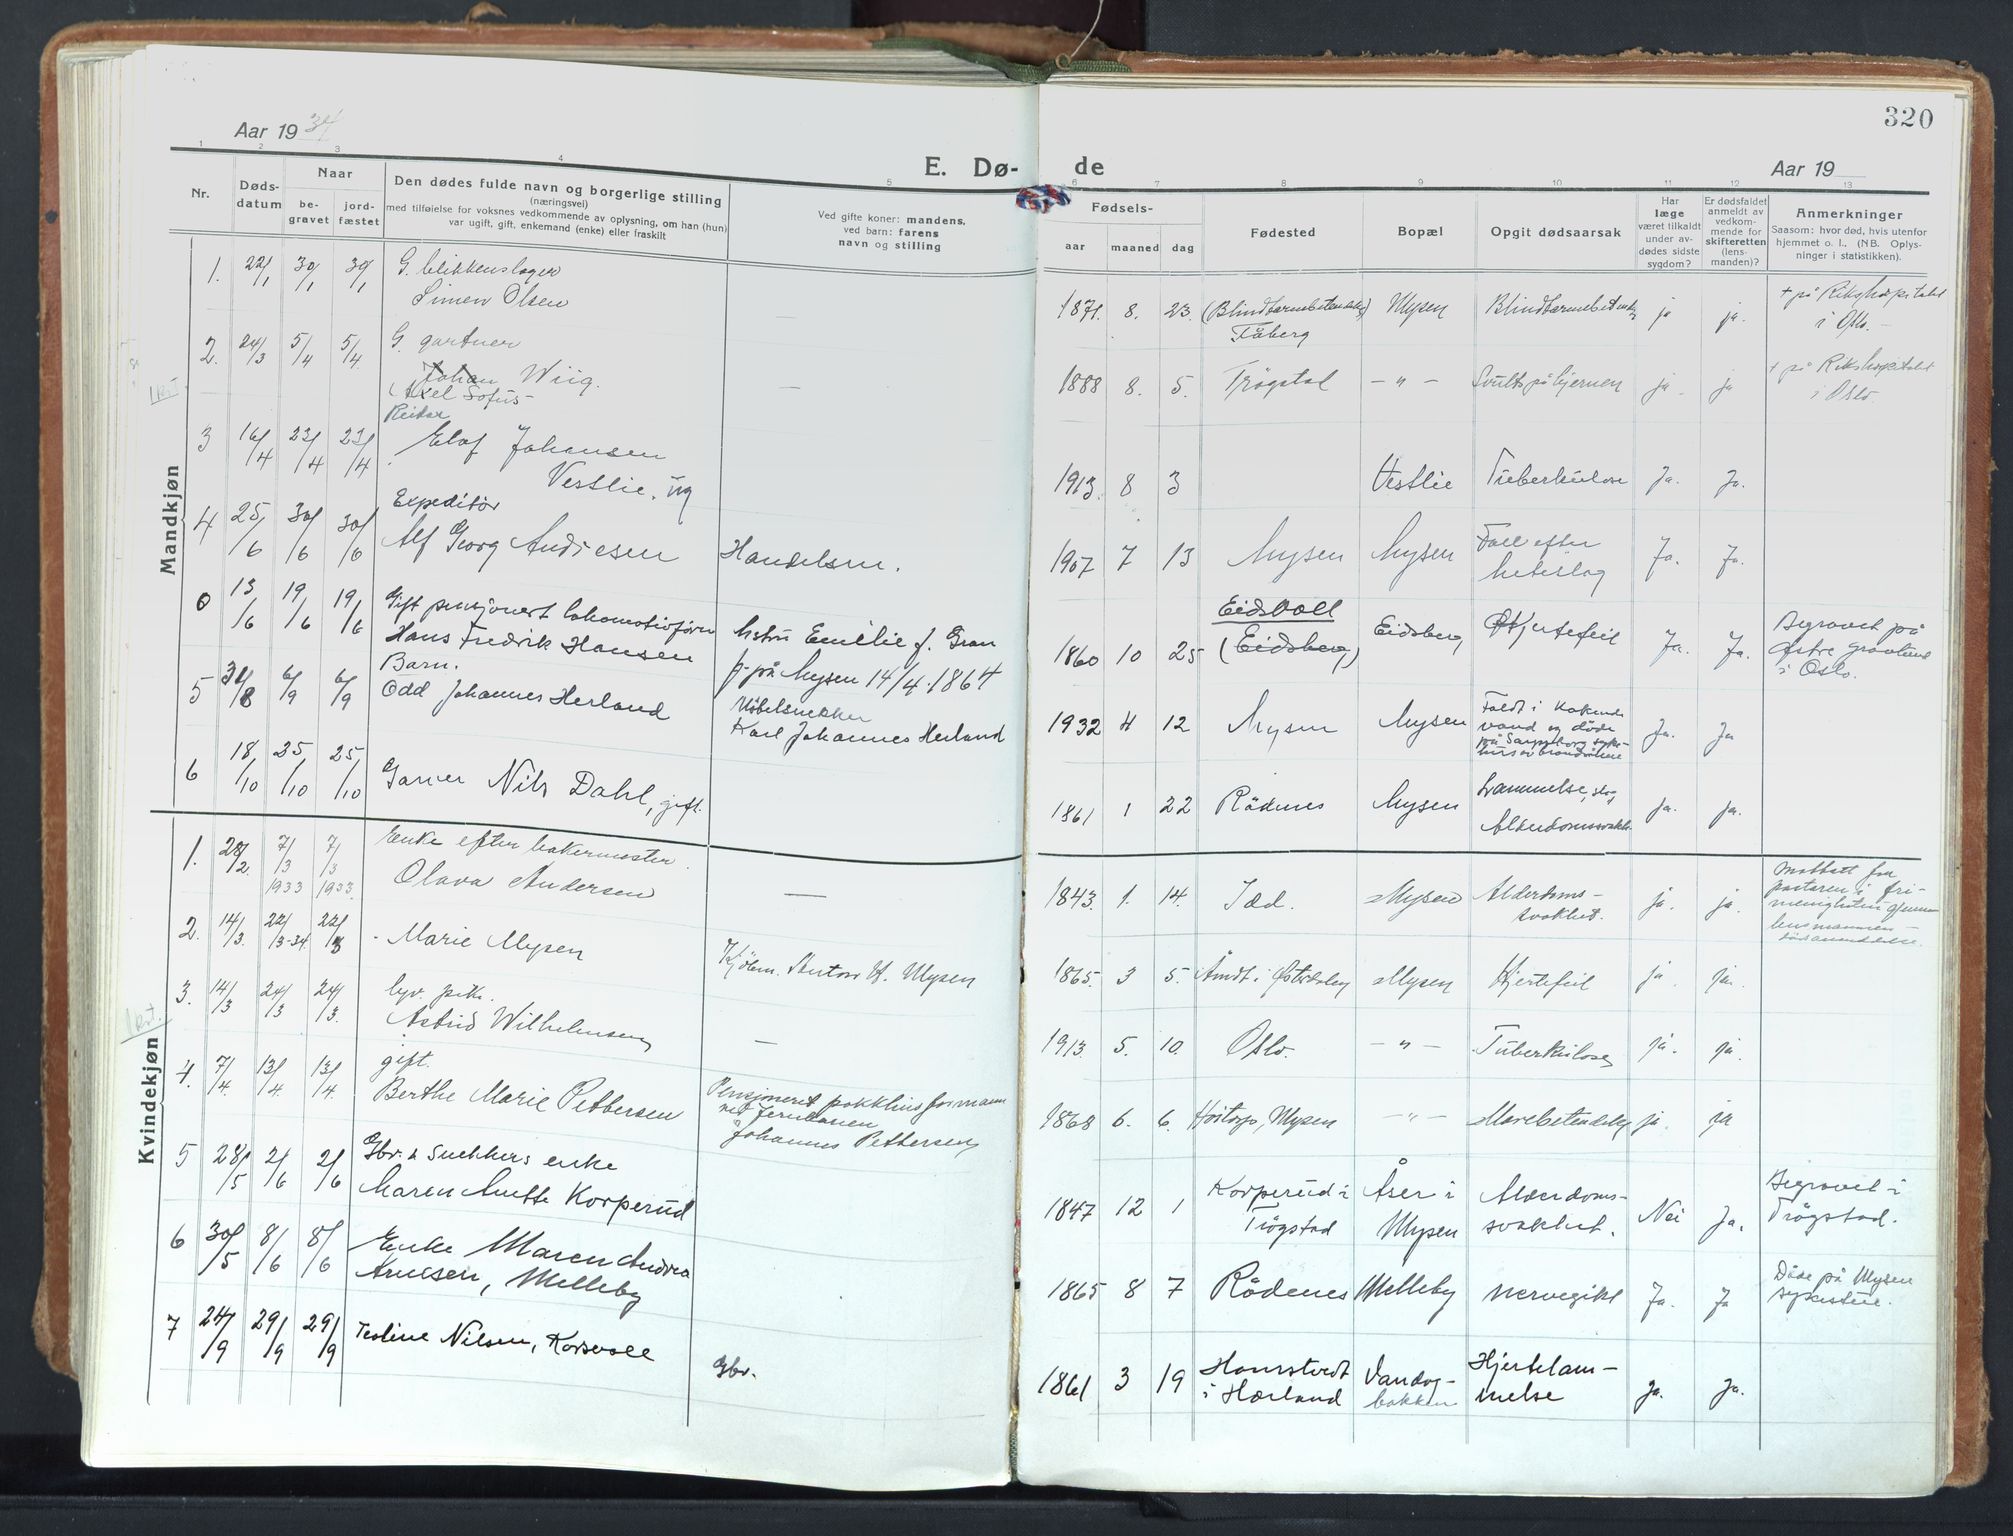 320
Aar 19 34
E. Dø-
de
Aar 19
1 2 3 4 5 6 7 8 9 10 11 12 13
Nr.
Døds-
datum
Naar
be-
gravet
jord-
fæstet
Den dødes fulde navn og borgerlige stilling
(næringsvei)
med tilføielse for voksnes vedkommende av oplysning, om han (hun)
var ugift, gift, enkemand (enke) eller fraskilt
Ved gifte koner: mandens,
ved barn: farens
navn og stilling
Fødsels-
aar
maaned
dag
Fødested
Bopæl
Opgit dødsaarsak
Har
læge
været tilkaldt
under av-
dødes sidste
sygdom?
Er dødsfaldet
anmeldt av
vedkom-
mende for
skifteretten
(lens-
manden)?
Anmerkninger
Saasom: hvor død, hvis utenfor
hjemmet o. l., (NB. Oplys-
ninger i statistikken).
Mandkjøn
1. 22/1 30/1 30/1 G. blikkenslager
Simen Olsen
1871. 8. 23. (Blindtarmbetendelse) Mysen Blindtarmbetendelse ja ja. + på Rikshospitalet
Fåberg
i Oslo. -
2. 24/3 5/4 5/4 G. gartner
Johan Wiig.
(Axel Sofus -
1888 8. 5. Trøgstad - " - Svulst på hjernen ja - ja + på Rikshospitalet
i Oslo.
Reidar
3 16/4 23/4 23/4 Elof Johansen
Vestlie. ug
1913. 8 3 Vestlie Tuberkulose Ja. Ja.
Expeditør
4 25/6 30/6 30/6 Alf Georg Andresen Handelsm.
1907 7 13 Mysen Mysen Fall efter
heteslag Ja. Ja.
0 13/6 19/6 19/6 Gift pensjonert lokomotivfører
Hans Fredrik Hansen
Hstru Emilie f. Gran
f. på Mysen 14/4. 1864
1860 10 25 Eidsvoll
(Eidsberg) Eidsberg Hjertefeil Ja. Ja. Begravet på
Østre gravlund
i Oslo.
Barn.
5 31/8 6/9 6/9 Odd Johannes Herland
Møbelsnekker
Karl Johannes Herland
1932 4 12 Mysen Mysen Faldt i kokende
vand og døde
på Sarpsborg syke-
hus av brandsårene Ja. Ja
6 18/10 25/10 25/10 Garver Nils Dahl, gift.
1861 1 22 Rødenes Mysen Lammelse, slag
Alderdomssvakh. Ja. Ja.
Kvindekjøn
1. 28/2. 7/3 1933 7/3 1933. Enke efter bakermester.
Olava Andersen —
1843. 1. 14. Idd. Mysen Alderdoms-
svakhet. ja. ja. Mottatt fra
pastoren i fri-
menigheten gjennem
lensmannen -
dødsanmeldelse.
2. 14/3. 22/3-34. 22/3 - Marie Mysen
Kjøbm. Anton H. Mysen
1865. 3 5. Åmdt i Østerdalen Mysen Hjertefeil ja. ja.
3. 14/3 24/3 24/3. lgv. pike.
Astrid Wilhelmsen —
1913. 5. 10. Oslo. - " - Tuberkulose ja. ja.
4. 7/4. 13/4. 13/4. gift.
Berthe Marie Pettersen
Pensjoneret pakkhusformann
ved Jernbanen
Johannes Pettersen
1868 6. 6. Høitorp, Mysen - " - Mavebetendelse ja. ja
5 28/5 2/6 2/6 Gbr. & Snekkers enke
Maren Anette Korperud
1847 12 1 Korperud i
Trøgstad Åser i
Mysen Alderdoms-
svakhet. Nei Ja. Begravet i
Trøgstad.
6 30/5 8/6 8/6 Enke Maren Andrea
Arnesen, Melleby
1865 8 7 Rødenes Melleby nervegikt Ja. Ja Døde på Mysen
sykestue.
7 24/9 29/9 29/9 Teoline Nilsen, Korsvoll
Gbr.
1861 3 19 Homstvedt
i Hærland Vandog-
bakken Hjertelam-
melse ja. Ja.